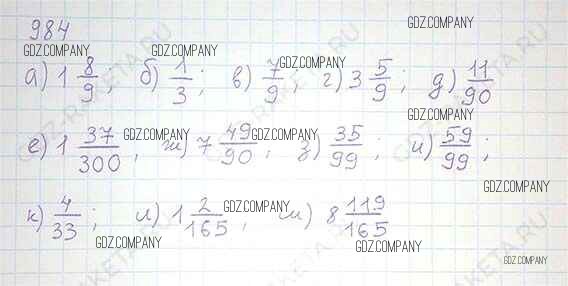 984
а) 1 8/9; б) 1/3; в) 7/9; г) 3 5/9; д) 11/90
е) 1 37/300; ж) 7 49/90; з) 35/99; и) 59/99;
к) 4/33; л) 1 2/165; м) 8 119/165
GDZ.COMPANY
GDZ.COMPANY
GDZ.COMPANY
GDZ.COMPANY
GDZ.COMPANY
GDZ.COMPANY
GDZ.COMPANY
GDZ.COMPANY
GDZ.COMPANY
GDZ.COMPANY
GDZ.COMPANY
GDZ.COMPANY
GDZ-RAKETA.RU